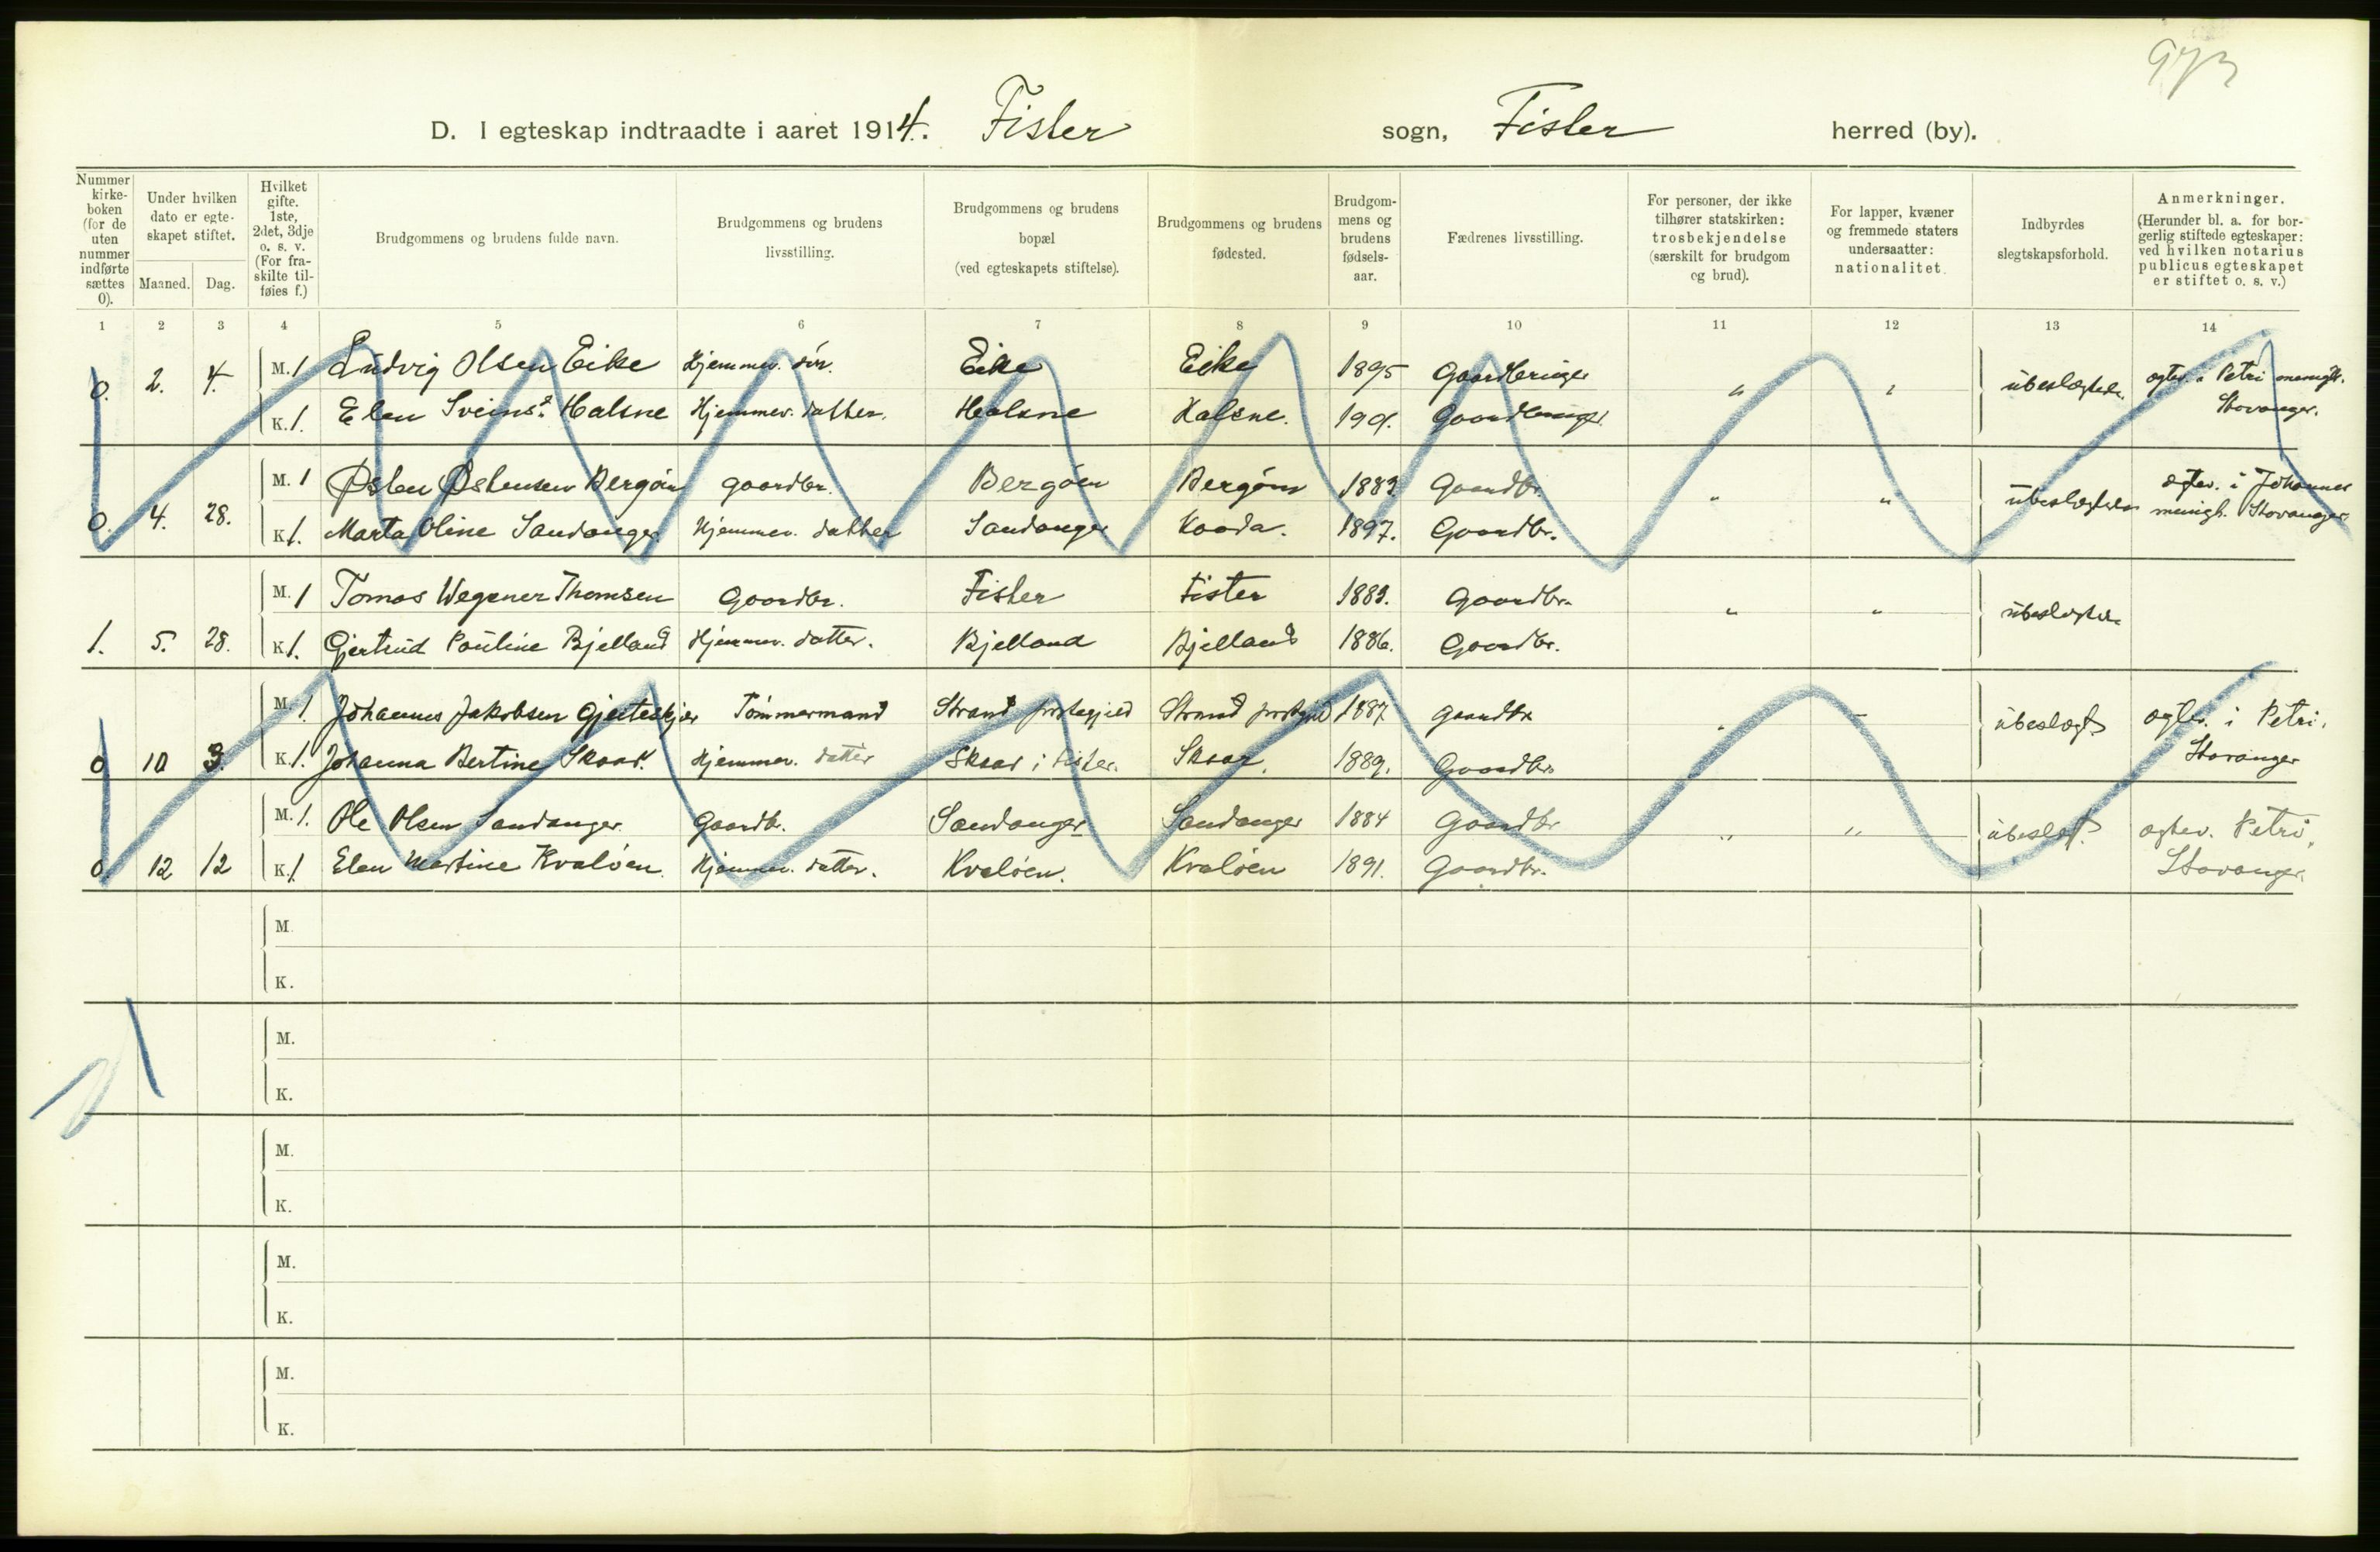 973
D. I egteskap indtraadte i aaret 1914. Fister sogn, Fister herred (by).
Nummer
kirke-
boken
(for de
uten
nummer
indførte
sættes
0).
Under hvilken
dato er egte-
skapet stiftet.
Maaned. Dag.
Hvilket
gifte.
1ste,
2det, 3dje
o. s. v.
(For fra-
skilte til-
føies f.)
Brudgommens og brudens fulde navn.
Brudgommens og brudens
livsstilling.
Brudgommens og brudens
bopæl
(ved egteskapets stiftelse).
Brudgommens og brudens
fødested.
Brudgom-
mens og
brudens
fødsels-
aar.
Fædrenes livsstilling.
For personer, der ikke
tilhører statskirken:
trosbekjendelse
(særskilt for brudgom
og brud).
For lapper, kvæner
og fremmede staters
undersaatter:
nationalitet.
Indbyrdes
slegtskapsforhold.
Anmerkninger.
(Herunder bl. a. for bor-
gerlig stiftede egteskaper:
ved hvilken notarius
publicus egteskapet
er stiftet o. s. v.)
1 2 3 4 5 6 7 8 9 10 11 12 13 14
0. 2. 4. M. 1 Ludvig Olsen Eike Hjemmev. søn. Eike Eike 1895 Gaardbruger " " ubeslegtede. egtev. i Petri menigh.
Stavanger.
K. 1. Elen Sveinsd. Halsne Hjemmev. datter. Halsne Halsne. Gaardbruger
0. 4. 28. M. 1 Østen Østensen Bergøen gaardbr. Bergøen Bergøen 1883 Gaardbr. " " ubeslegtede egtev. i Johannes
menigh. Stavanger
K. 1. Marta Oline Sandanger. Hjemmev. datter Sandanger Kaada. 1897. Gaardbr.
M. 1 Tomas Wegener Thomsen Gaardbr. Fister Fister 1883. Gaardbr. " " ubeslegtede
1. 5. 28. K. 1. Gjertrud Pauline Bjelland Hjemmev. datter. Bjelland Bjelland 1886. Gaardbr.
M. 1. Johannes Jakobsen Gjerteskjer Tömmermand Strand prstegjeld Strand prstgjeld 1887 gaardbr " - ubeslegt. egtev. i Petri,
Stavanger
0 10 3. K. 1. Johanna Bertine Skaar. Hjemmev. datter Skaar i Fister. Skaar. 1889. Gaardbr.
M. 1. Ole Olsen Sandanger. Gaardb. Sandanger Sandanger 1884 Gaardbr " " ubeslegt. egtev. Petri,
Stavanger.
0 12 12 K. 1 Elen Martine Kvaløen. Hjemmev. datter. Kvaløen. Kvaløen 1891. Gaardbr.
M.
K.
M.
K.
M.
K.
M.
K.
M.
K.